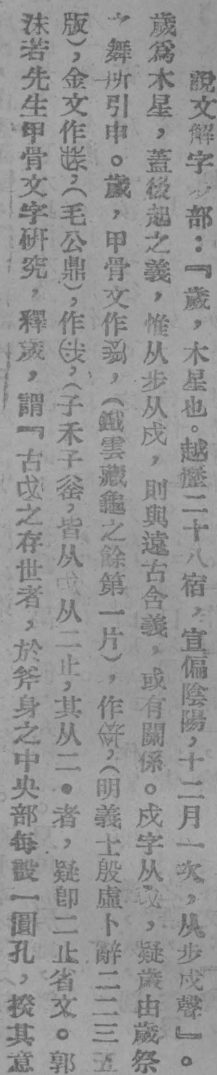 說文解字步部：『歲，木星也。越歷二十八宿，宣徧陰陽，十二月一次，从步戌聲』。
歲爲木星，蓋後起之義，惟从步从戌，則與遠古含義，或有關係。戌字从戉，疑歲由歲祭
之舞所引申。歲，甲骨文作，（鐵雲藏龜之餘第一片），作，（明義士殷虛卜辭二二三五
版），金文作，（毛公鼎），作，（子禾子釜，皆从戉从二止，其从二•者，疑卽二止省文。郭
沫若先生甲骨文字研究，釋歲，謂『古戉之存世者，於斧身之中央部每設一圓孔，揆其意